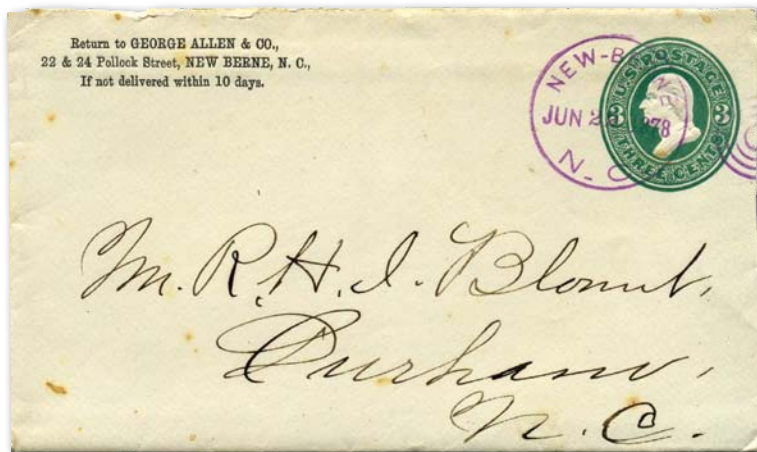 Return to GEORGE ALLEN & CO.,
22 & 24 Pollock Street, NEW BERNE, N. C.,
If not delivered within 10 days.
NEW-B
JUN 2 1878
N. C.
U.S. POSTAGE
3 3
THREE CENTS
Mr. R. H. I. Blount,
Durham,
N. C.